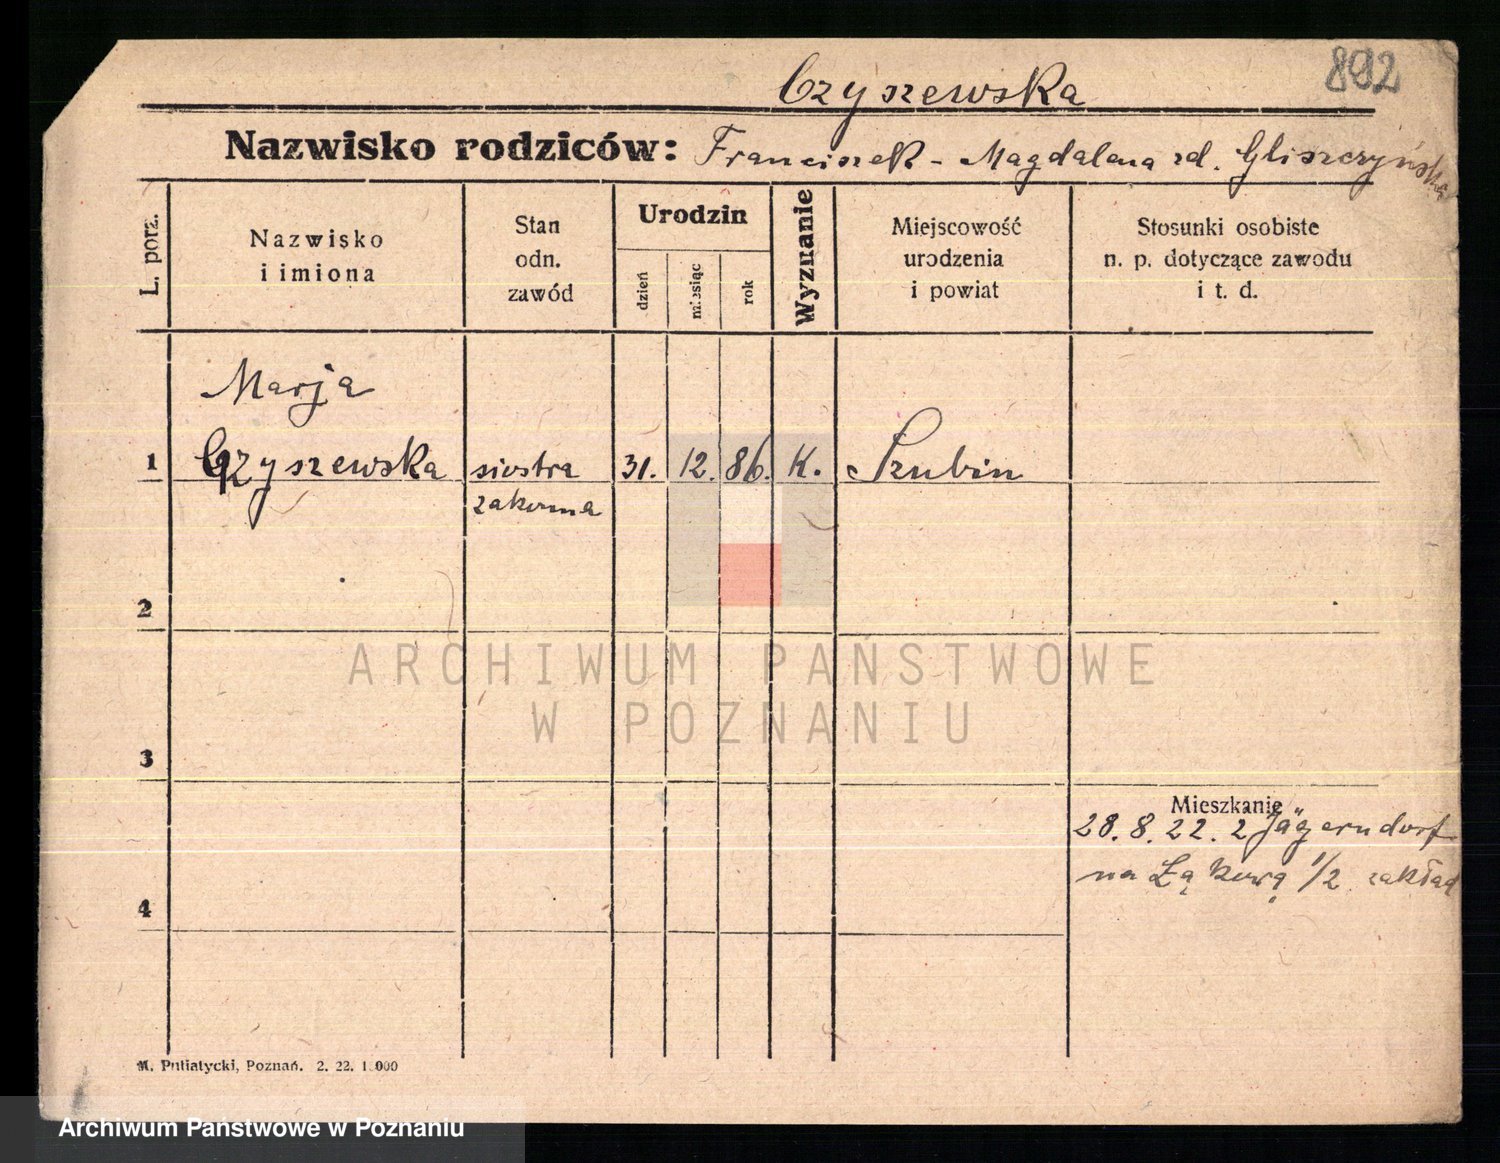 892
Czyszewska
Nazwisko rodziców: Franciszek - Magdalena zd. Gliszczyńska
L. porz.
Nazwisko
i imiona
Stan
odn.
zawód
Urodzin
dzień
miesiąc
rok
Wyznanie
Miejscowość
urodzenia
i powiat
Stosunki osobiste
n. p. dotyczące zawodu
i t. d.
Marja
1 Czyszewska siostra 31. 12. 86. K. Szubin
zakonna
2
ARCHIWUM PAŃSTWOWE
W POZNANIU
3
Mieszkanie
28. 8. 22. z Jägerndorf
na Łąkową 1/2 zakład
4
M. Putiatycki, Poznań. 2. 22. 1.000
Archiwum Państwowe w Poznaniu